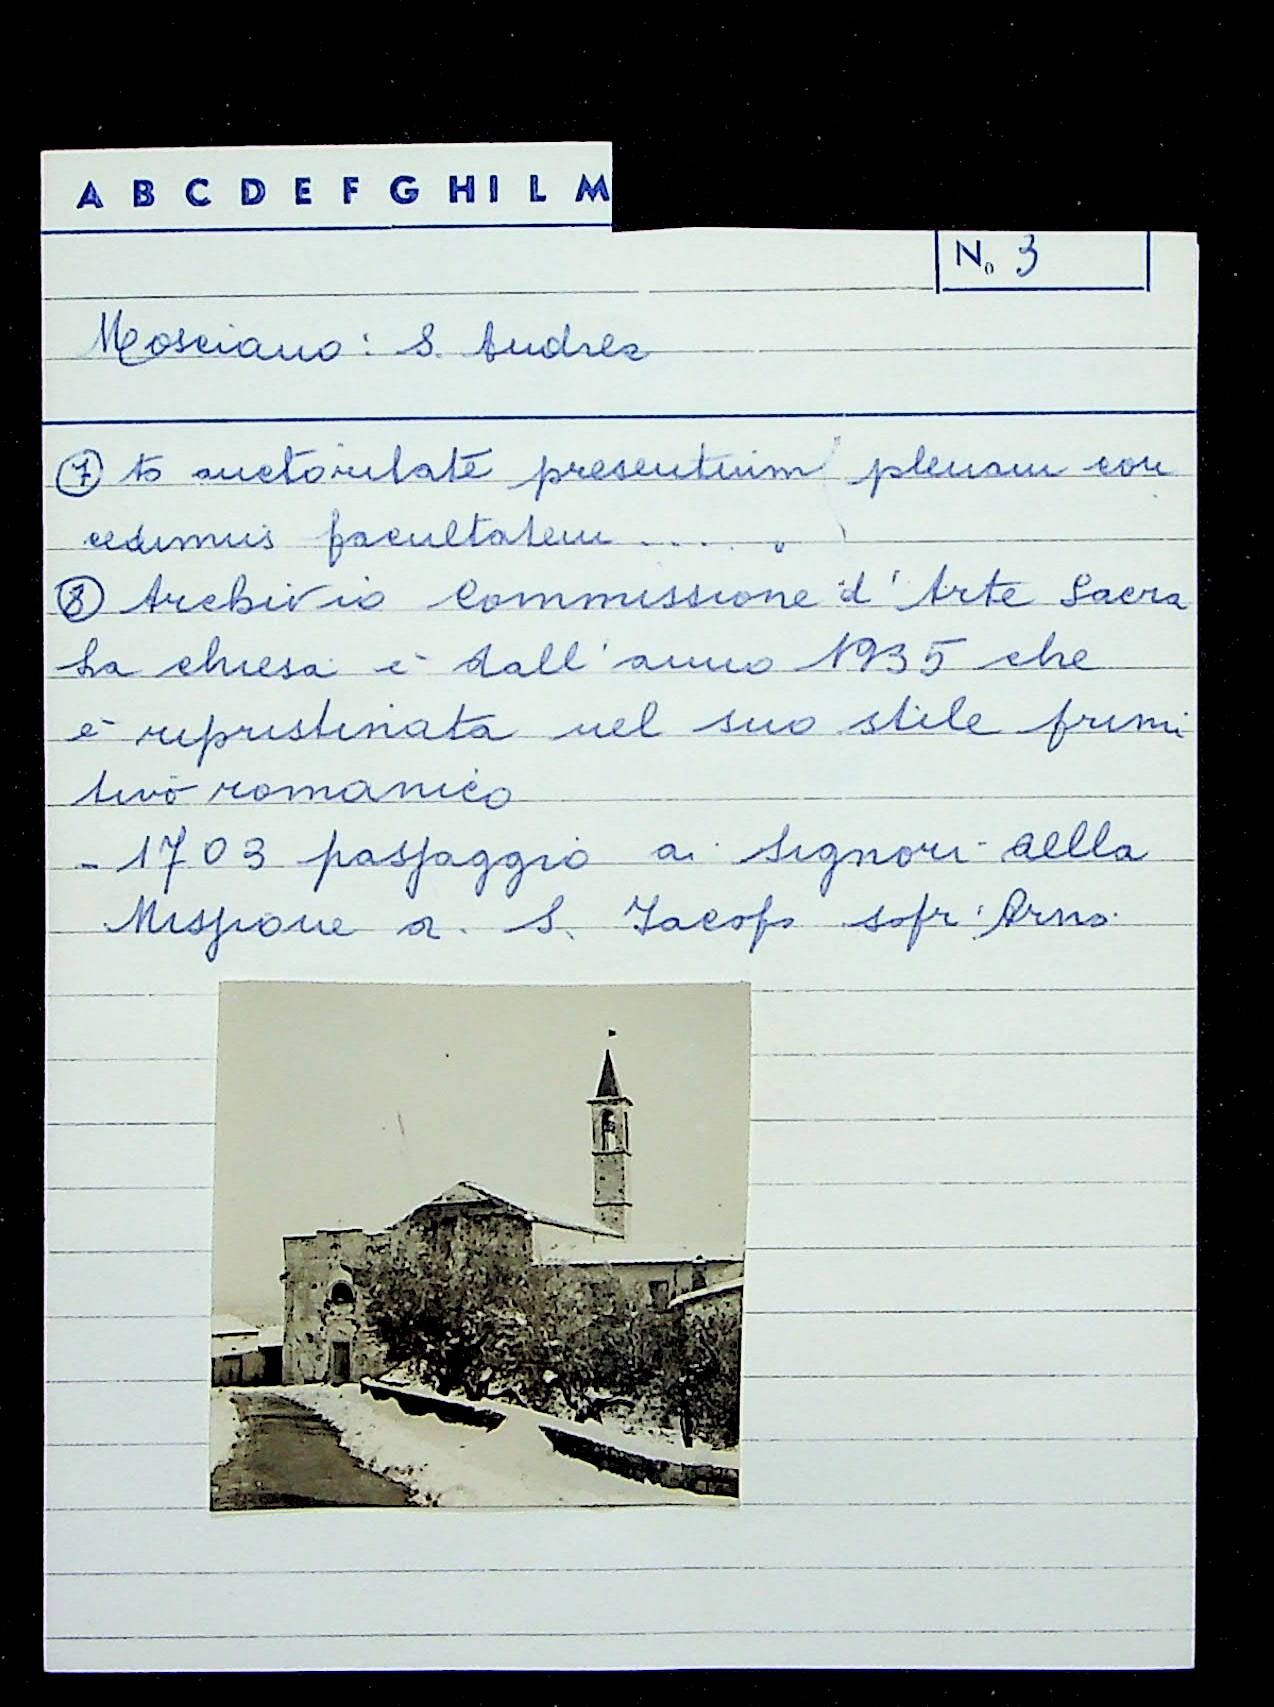 A B C D E F G H I L M
No 3
Mosciano: S. Andrea
⑦ to auctoritate presentium plenam con
cedimus facultatem .....
⑧ Archivio Commissione d'Arte Sacra
La chiesa è dall'anno 1935 che
è ripristinata nel suo stile primi
tivo romanico
- 1703 passaggio ai Signori della
Missione a S. Jacopo sopr'Arno